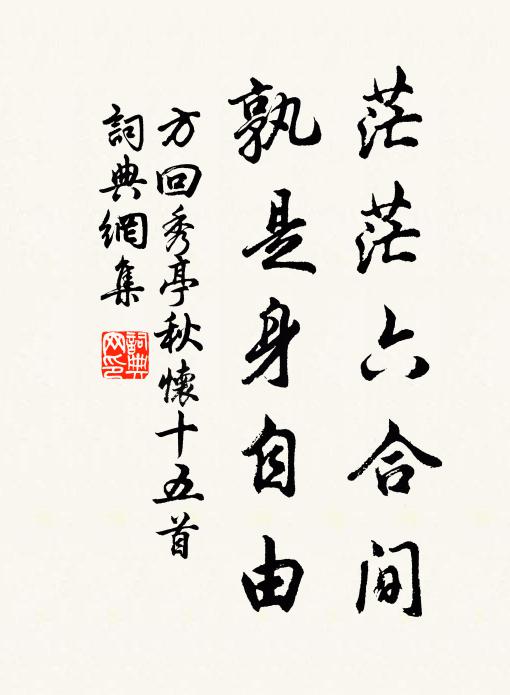 茫茫六合間
孰是身自由
方回秀亭秋懷十五首
詞典網集
詞典網印